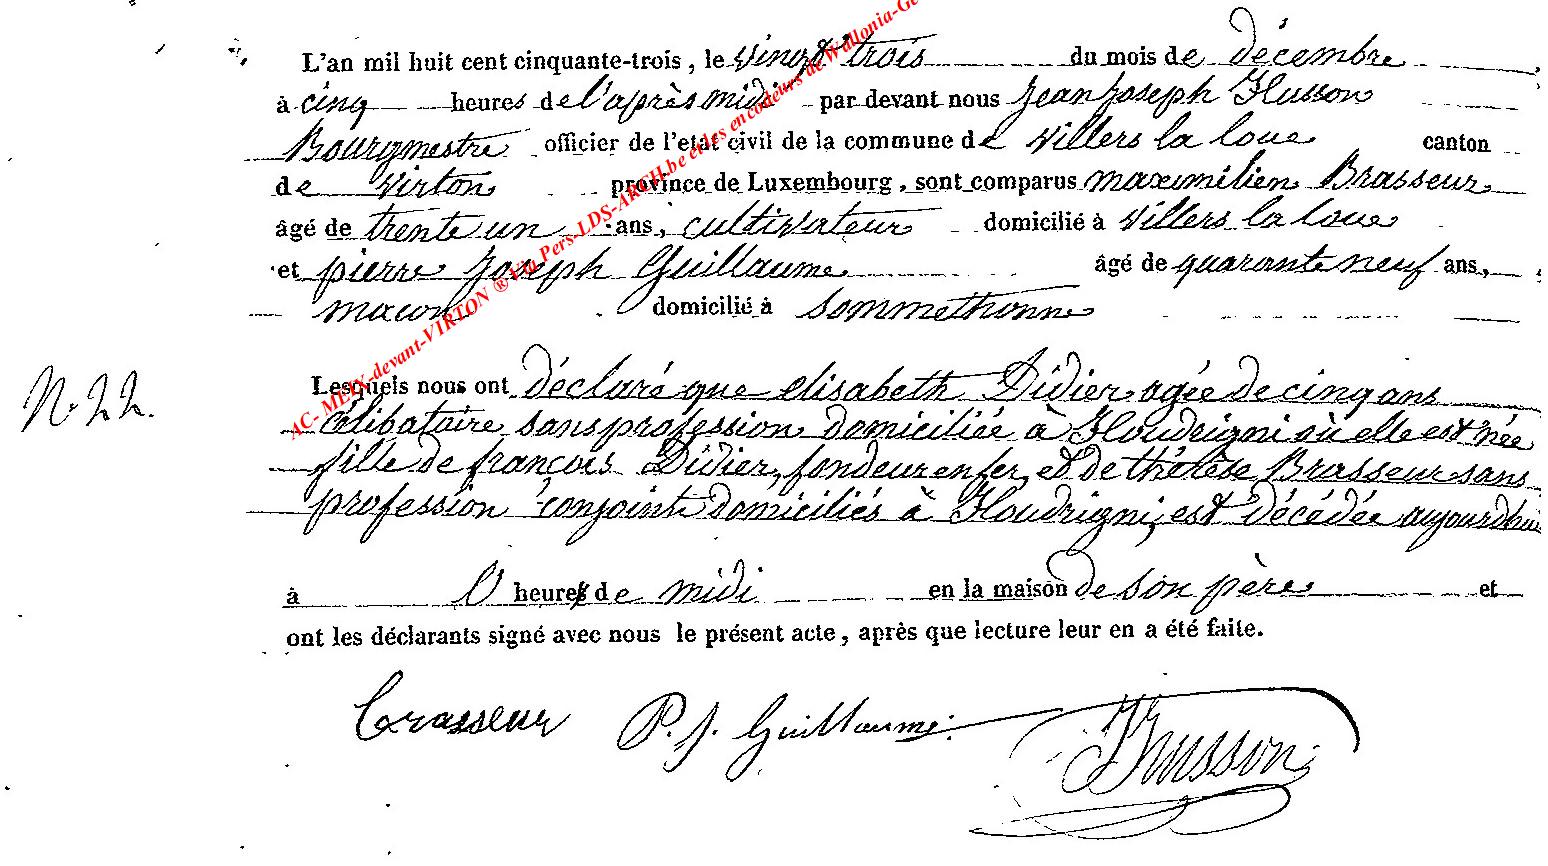 L'an mil huit cent cinquante-trois, le vingt trois du mois de décembre
à cinq heures de l'après midi par devant nous Jean Joseph Husson
Bourgmestre officier de l'état civil de la commune de Villers la loue canton
de Virton province de Luxembourg, sont comparus maximilien Brasseur
âgé de trente un ans, cultivateur domicilié à Villers la loue
et pierre Joseph Guillaume âgé de quarante neuf ans,
macon domicilié à Sommethonne
N. 22.
Lesquels nous ont déclaré que elisabeth Didier agée de cinq ans
célibataire sans profession domiciliée à Houdrigni où elle est née
fille de françois Didier, fondeur en fer et de thérèse Brasseur sans
profession conjoint domiciliés à Houdrigni, est décédée aujourdhui
à heures de midi en la maison de son père et
ont les déclarants signé avec nous le présent acte, après que lecture leur en a été faite.
Brasseur P. J. Guillaume. Husson
AC- MEIX-devant-VIRTON ® Via Pers-LDS-ARCH.be et les encodeurs de Wallonia-Ge